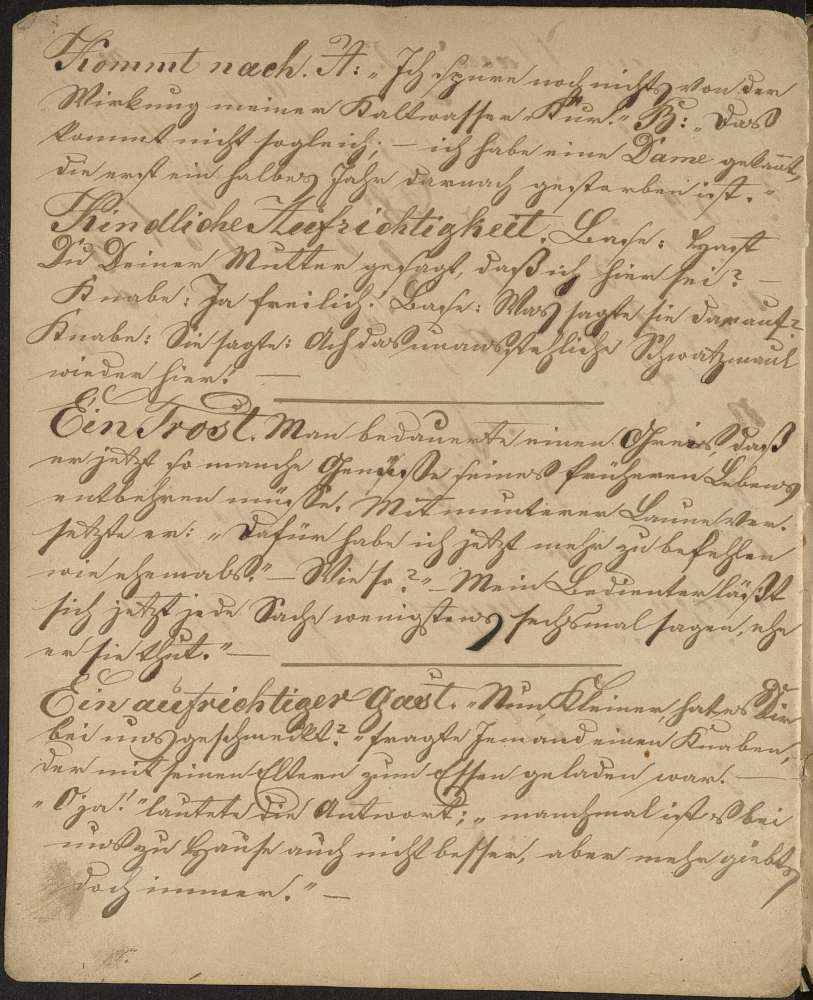 Kommt nach. A: „Ich spüre noch nichts von der
Wirkung meiner Kaltwasser-Kur.“ B: „Das
kommt nicht sogleich; — ich habe eine Dame gekannt,
die erst ein halbes Jahr darnach gestorben ist.“
Kindliche Aufrichtigkeit. Base: Hast
Du Deiner Mutter gesagt, daß ich hier sei? —
Knabe: Ja freilich! Base: Was sagte sie darauf?
Knabe: Sie sagte: Ach das unausstehliche Schwatzmaul
wieder hier! —
Ein Trost. Man bedauerte einen Greis, daß
er jetzt so manche Genüsse seines früheren Lebens
entbehren müsse. Mit munterer Laune ver-
setzte er: „Dafür habe ich jetzt mehr zu befehlen
wie ehemals.“ — Wie so?“ — Mein Bedienter läßt
sich jetzt jede Sache wenigstens sechsmal sagen, ehe
er sie thut.“ —
Ein aufrichtiger Gast. „Nun Kleiner, hat es Dir
bei uns geschmeckt?“ fragte Jemand einen Knaben,
der mit seinen Eltern zum Essen geladen war. —
„O ja!“ lautete die Antwort; „manchmal ist es bei
uns zu Hause auch nicht besser, aber mehr giebts
doch immer.“ —